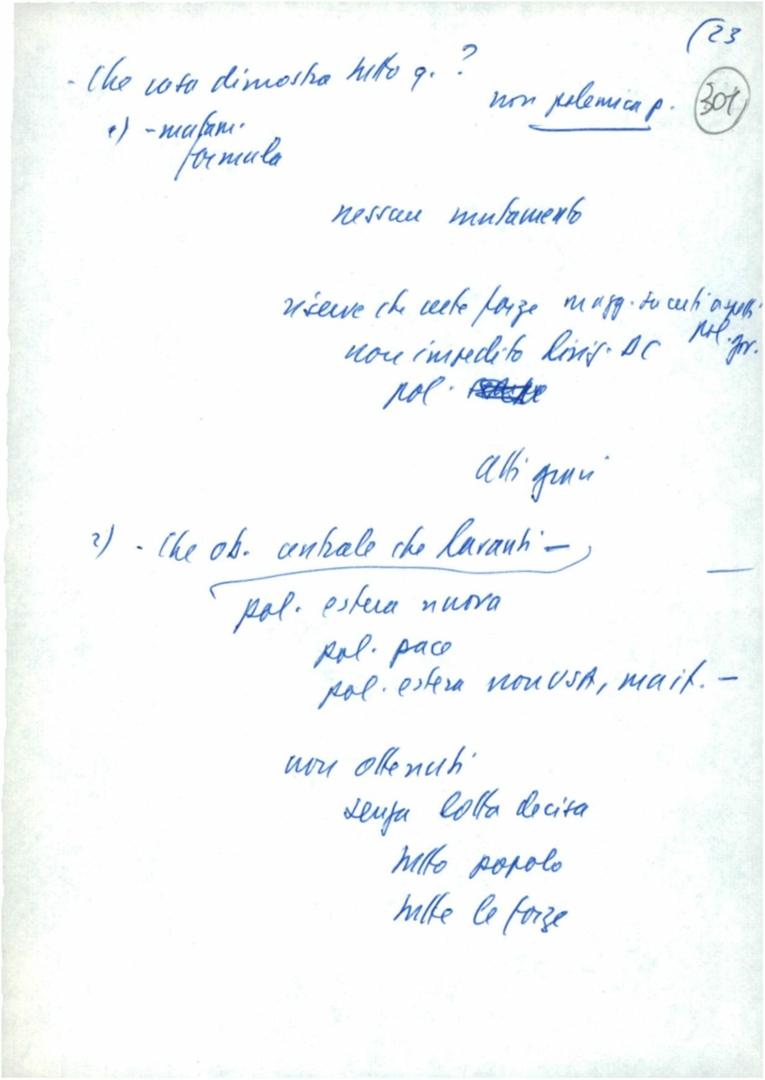 (23
301
- Che cosa dimostra tutto q. ?
non polemica p.
1) - mutam.
formula
nessun mutamento
riserve che certe forze magg. su certi aspetti
pol. gov.
non impedito DC
pol.
atti gravi
2) - Che ob. centrale che lavanti -
pol. estera nuova
pol. pace
pol. estera non USA, ma it. -
non ottenuti
senza lotta decisa
tutto popolo
tutte le forze